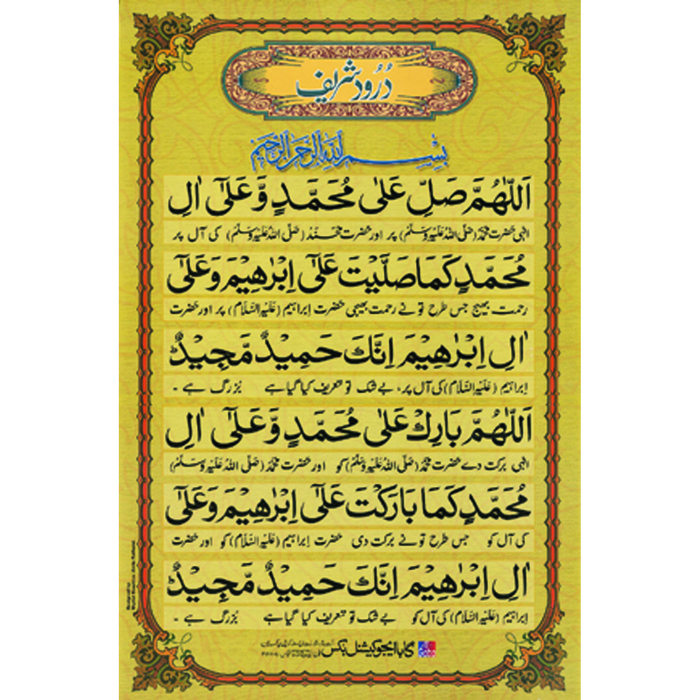 دُرُود شریف
بِسْمِ اللهِ الرَّحْمٰنِ الرَّحِيْمِ
اَللّٰهُمَّ صَلِّ عَلٰى مُحَمَّدٍ وَّعَلٰٓى اٰلِ
الٰہی حضرت محمدؐ (صَلَّی اللہُ عَلَیْہِ وَسَلَّمْ) پر اور حضرت محمدؐ (صَلَّی اللہُ عَلَیْہِ وَسَلَّمْ) کی آل پر
مُحَمَّدٍ كَمَا صَلَّيْتَ عَلٰٓى اِبْرٰهِيْمَ وَعَلٰٓى
رحمت بھیج جس طرح تو نے رحمت بھیجی حضرت اِبراہیم (عَلَیْہِ السَّلَام) پر اور حضرت
اٰلِ اِبْرٰهِيْمَ اِنَّكَ حَمِيْدٌ مَّجِيْدٌ
اِبراہیم (عَلَیْہِ السَّلَام) کی آل پر، بے شک تو تعریف کیا گیا ہے بزرگ ہے ۔
اَللّٰهُمَّ بَارِكْ عَلٰى مُحَمَّدٍ وَّعَلٰٓى اٰلِ
الٰہی برکت دے حضرت محمدؐ (صَلَّی اللہُ عَلَیْہِ وَسَلَّمْ) کو اور حضرت محمدؐ (صَلَّی اللہُ عَلَیْہِ وَسَلَّمْ)
مُحَمَّدٍ كَمَا بَارَكْتَ عَلٰٓى اِبْرٰهِيْمَ وَعَلٰٓى
کی آل کو جس طرح تو نے برکت دی حضرت اِبراہیم (عَلَیْہِ السَّلَام) کو اور حضرت
اٰلِ اِبْرٰهِيْمَ اِنَّكَ حَمِيْدٌ مَّجِيْدٌ
اِبراہیم (عَلَیْہِ السَّلَام) کی آل کو بے شک تو تعریف کیا گیا ہے بزرگ ہے ۔
گابا ایجوکیشنل بکس